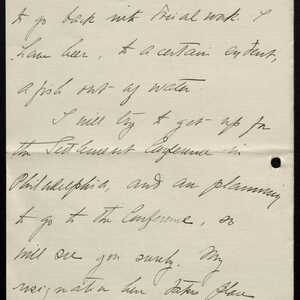 to go back into Social work. I
have been, to a certain extent,
a fish out of water.
I will try to get up for
the Settlement Conference in
Philadelphia, and am planning
to go to the Conference, so
will see you surely. My
resignation here takes place